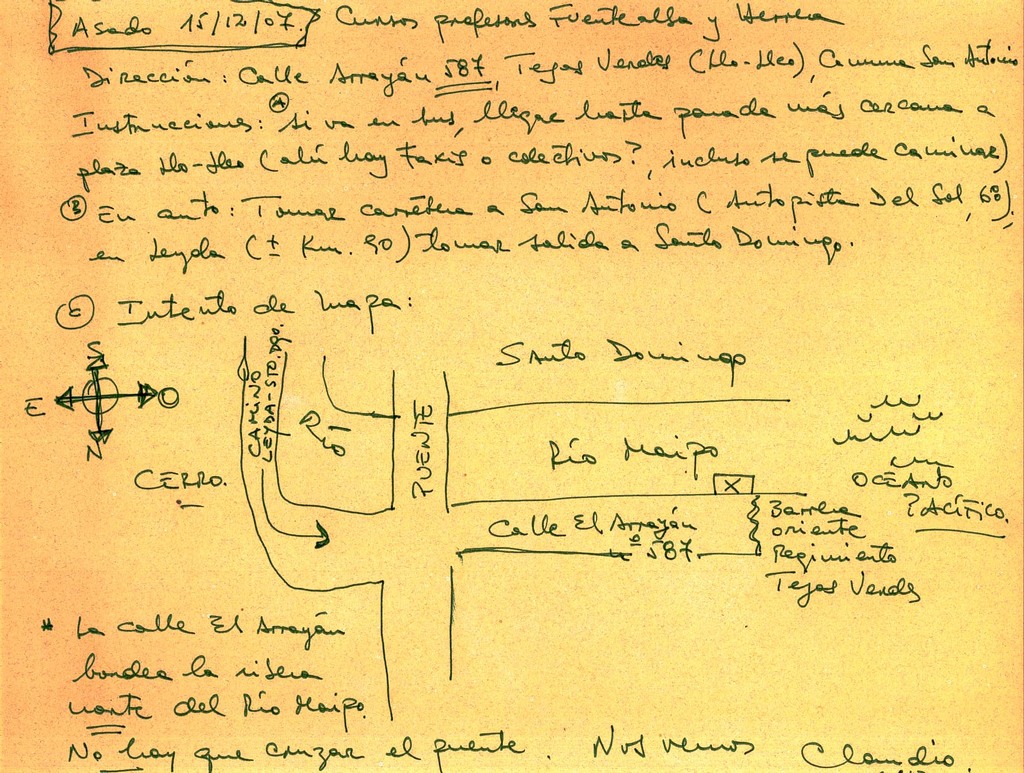 Asado 15/12/07. Cursos profesores Fuentealba y Herrera
Dirección: Calle Arrayán 587, Tejas Verdes (Llo-Lleo), Comuna San Antonio
Instrucciones: A Si va en bus, llegar hasta parada más cercana a
plaza Llo-Lleo (ahí hay taxis o colectivos?, incluso se puede caminar)
B En auto: Tomar carretera a San Antonio (Autopista Del Sol, 68),
en Leyda (± Km. 90) tomar salida a Santo Domingo.
C Intento de mapa:
S
E
O
N
CERRO.
CAMINO
LEYDA-STO. DGO.
Río
PUENTE
Santo Domingo
Río Maipo
X
OCÉANO
PACÍFICO.
Calle El Arrayán
º 587
Barrera
oriente
Regimiento
Tejas Verdes
* La calle El Arrayán
bordea la ribera
norte del Río Maipo.
No hay que cruzar el puente. Nos vemos Claudio.